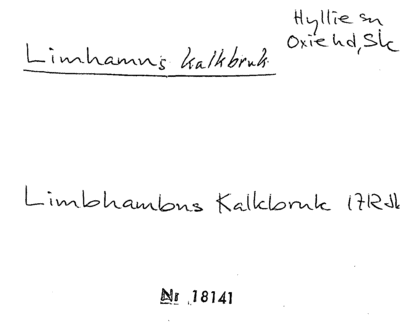 Hyllie sn
Oxie hd, Sk
Limhamns kalkbruk
Limbhambns Kalkbruk 17R Jb
Nr 18141